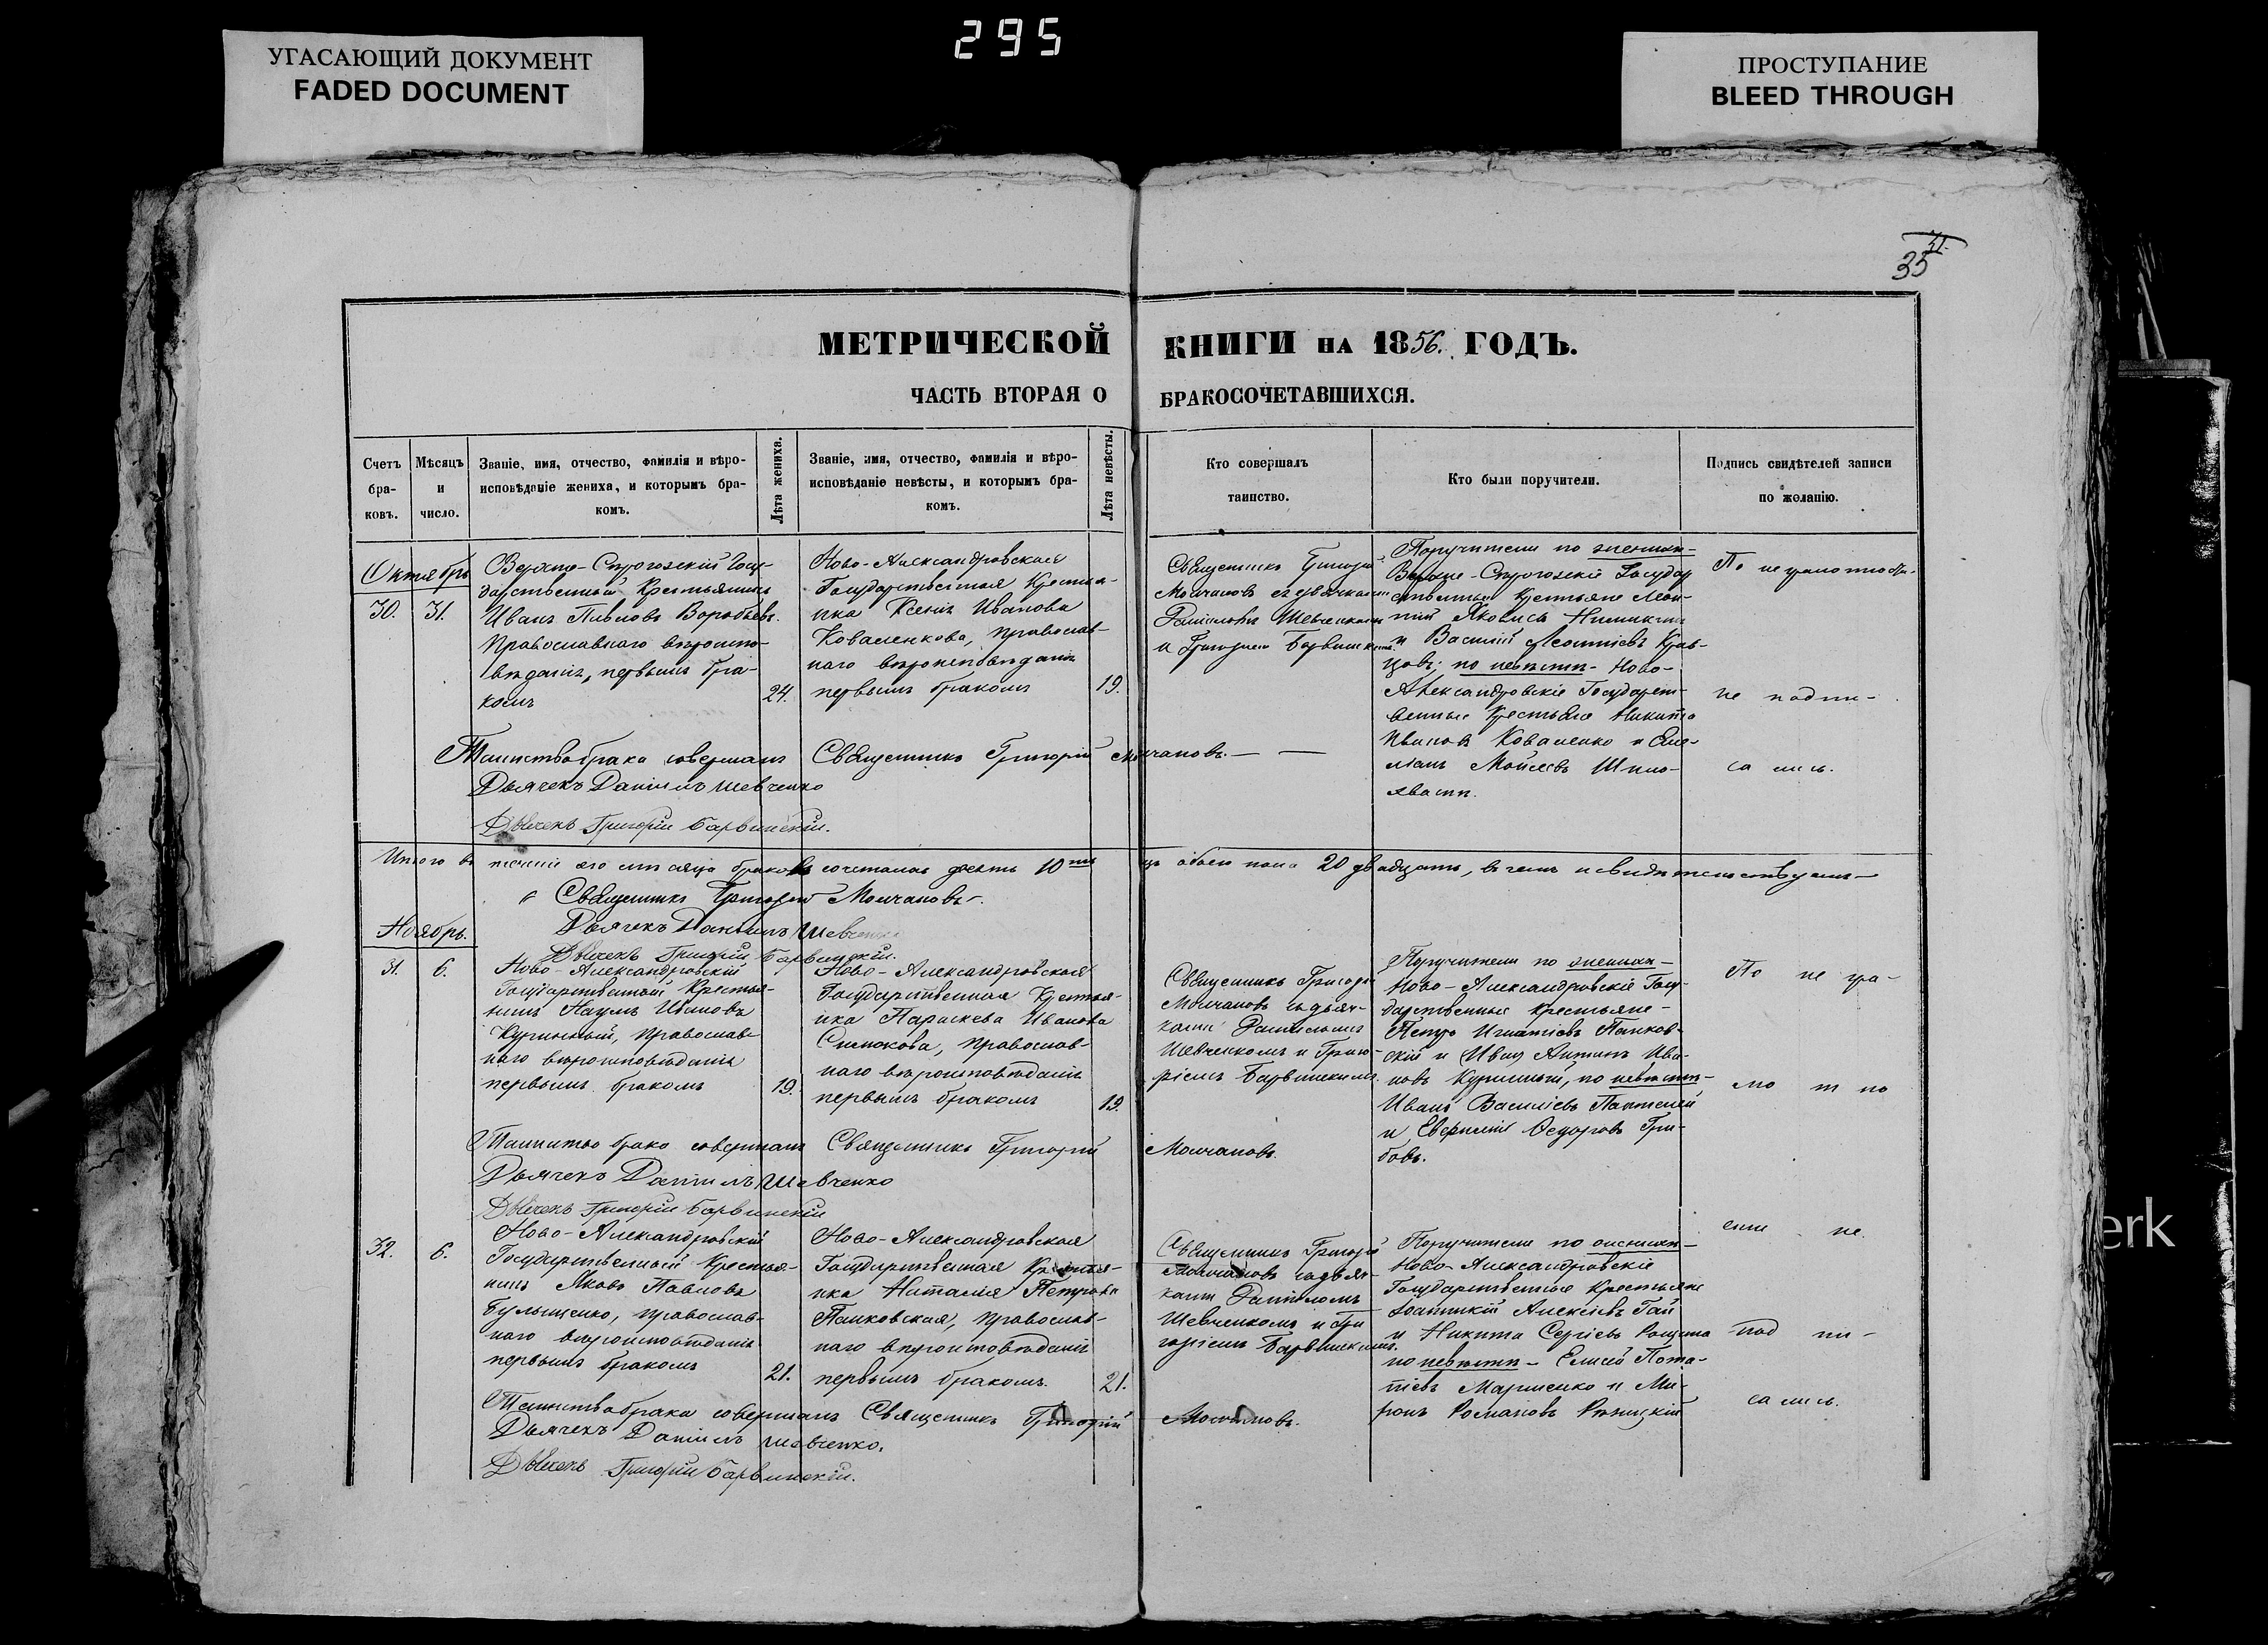 295
УГАСАЮЩИЙ ДОКУМЕНТ
FADED DOCUMENT
ПРОСТУПАНИЕ
BLEED THROUGH
35
МЕТРИЧЕСКОЙ КНИГИ НА 1856. ГОДЪ.
ЧАСТЬ ВТОРАЯ О БРАКОСОЧЕТАВШИХСЯ.
Счетъ
бра-
ковъ.
Мѣсяцъ
и
число.
Званіе, имя, отчество, фамилія и вѣро-
исповѣданіе жениха, и которымъ бра-
комъ.
Лѣта жениха.
Званіе, имя, отчество, фамилія и вѣро-
исповѣданіе невѣсты, и которымъ бра-
комъ.
Лѣта невѣсты.
Кто совершалъ
таинство.
Кто были поручители.
Подпись свидѣтелей записи
по желанію.
Октябрь
30.
31.
Государственный Крестьянинъ
Иванъ Воробьевъ.
Православнаго вѣроиспо-
вѣданія, первымъ бра-
комъ
24.
Ново-Александровская
Государственная Крестья-
нка Ксенія Иванова
Коваленкова, православ-
наго вѣроисповѣданія
первымъ бракомъ
19.
Священникъ Григорій
Молчановъ
Шевченкомъ
и Григоріемъ Барвинскимъ.
Поручители по
крестьяне
и Василій Леонтіевъ Крав-
цовъ; по невѣстѣ - Ново-
Александровскіе Государст-
венные Крестьяне Никита
Ивановъ Коваленко и Еме-
ліанъ Моисеевъ
По неграмотности
не подпи-
сались.
Таинство брака совершалъ Священникъ Григорій Молчановъ.
Дьячекъ Даніилъ Шевченко
Дьячекъ Григорій Барвинскій.
Итого въ теченіе сего мѣсяца браковъ сочеталось десять 10ть обоего пола 20 двадцать, въ чемъ и свидѣтельствуемъ
Священникъ Григорій Молчановъ.
Дьячекъ Даніилъ Шевченко
Дьячекъ Григорій Барвинскій.
Ноябрь.
31.
6.
Ново-Александровскій
Государственный Крестья-
нинъ Наумъ Ивановъ
православ-
наго вѣроисповѣданія
первымъ бракомъ
19.
Ново-Александровская
Государственная Крестья-
нка Параскева Иванова
православ-
наго вѣроисповѣданія
первымъ бракомъ
19.
Священникъ Григорій
Молчановъ съ дьяч-
ками Даніиломъ
Шевченкомъ и Григо-
ріемъ Барвинскимъ.
Поручители по
Ново-Александровскіе Госу-
дарственные крестьяне -
Петръ Игнатіевъ Панков-
скій и Ива-
новъ по невѣстѣ -
Иванъ Василіевъ
и Ѳедоровъ Гри-
бовъ.
По не гра-
мот но
Таинство брака совершалъ Священникъ Григорій Молчановъ.
Дьячекъ Даніилъ Шевченко
Дьячекъ Григорій Барвинскій
32.
6.
Ново-Александровскій
Государственный Крестья-
нинъ Яковъ Павловъ
православ-
наго вѣроисповѣданія
первымъ бракомъ
21.
Ново-Александровская
Государственная Крестья-
нка Наталія Петрова
Панковская, православ-
наго вѣроисповѣданія
первымъ бракомъ.
21.
Священникъ Григорій
Молчановъ съ дьяч-
ками Даніиломъ
Шевченкомъ и Гри
горіемъ Барвинскимъ.
Поручители по
Ново-Александровскіе
Государственные Крестьяне
Іоанникій Алексіевъ Гай
и Никита Сергіевъ
по невѣстѣ - Елисей Пота-
піевъ Марченко и Ми-
ронъ Романовъ
сти не
под пи-
сались.
Таинство брака совершалъ Священникъ Григорій Молчановъ.
Дьячекъ Даніилъ Шевченко.
Дьячекъ Григорій Барвинскій.
erk